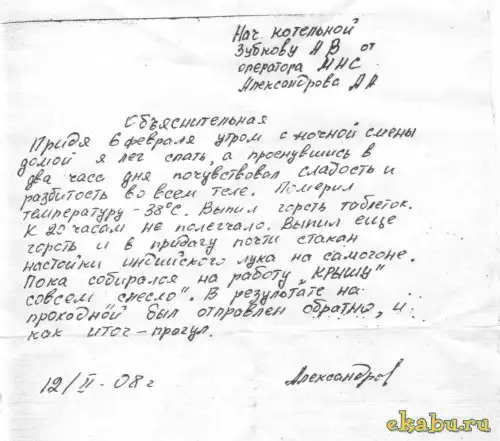 Нач. котельной
Зубкову А В от
оператора МНС
Александрова АА
Объяснительная
Придя 6 февраля утром с ночной смены
домой я лег спать, а проснувшись в
два часа дня почувствовал сладость и
разбитость во всем теле. Померил
температуру - 38°С. Выпил горсть таблеток.
К 20 часам не полегчало. Выпил еще
горсть и в придачу почти стакан
настойки индийского лука на самогоне.
Пока собирался на работу „крышу
совсем снесло". В результате на
проходной был отправлен обратно, и
как итог - прогул.
12/II-08г Александров
ekabu.ru